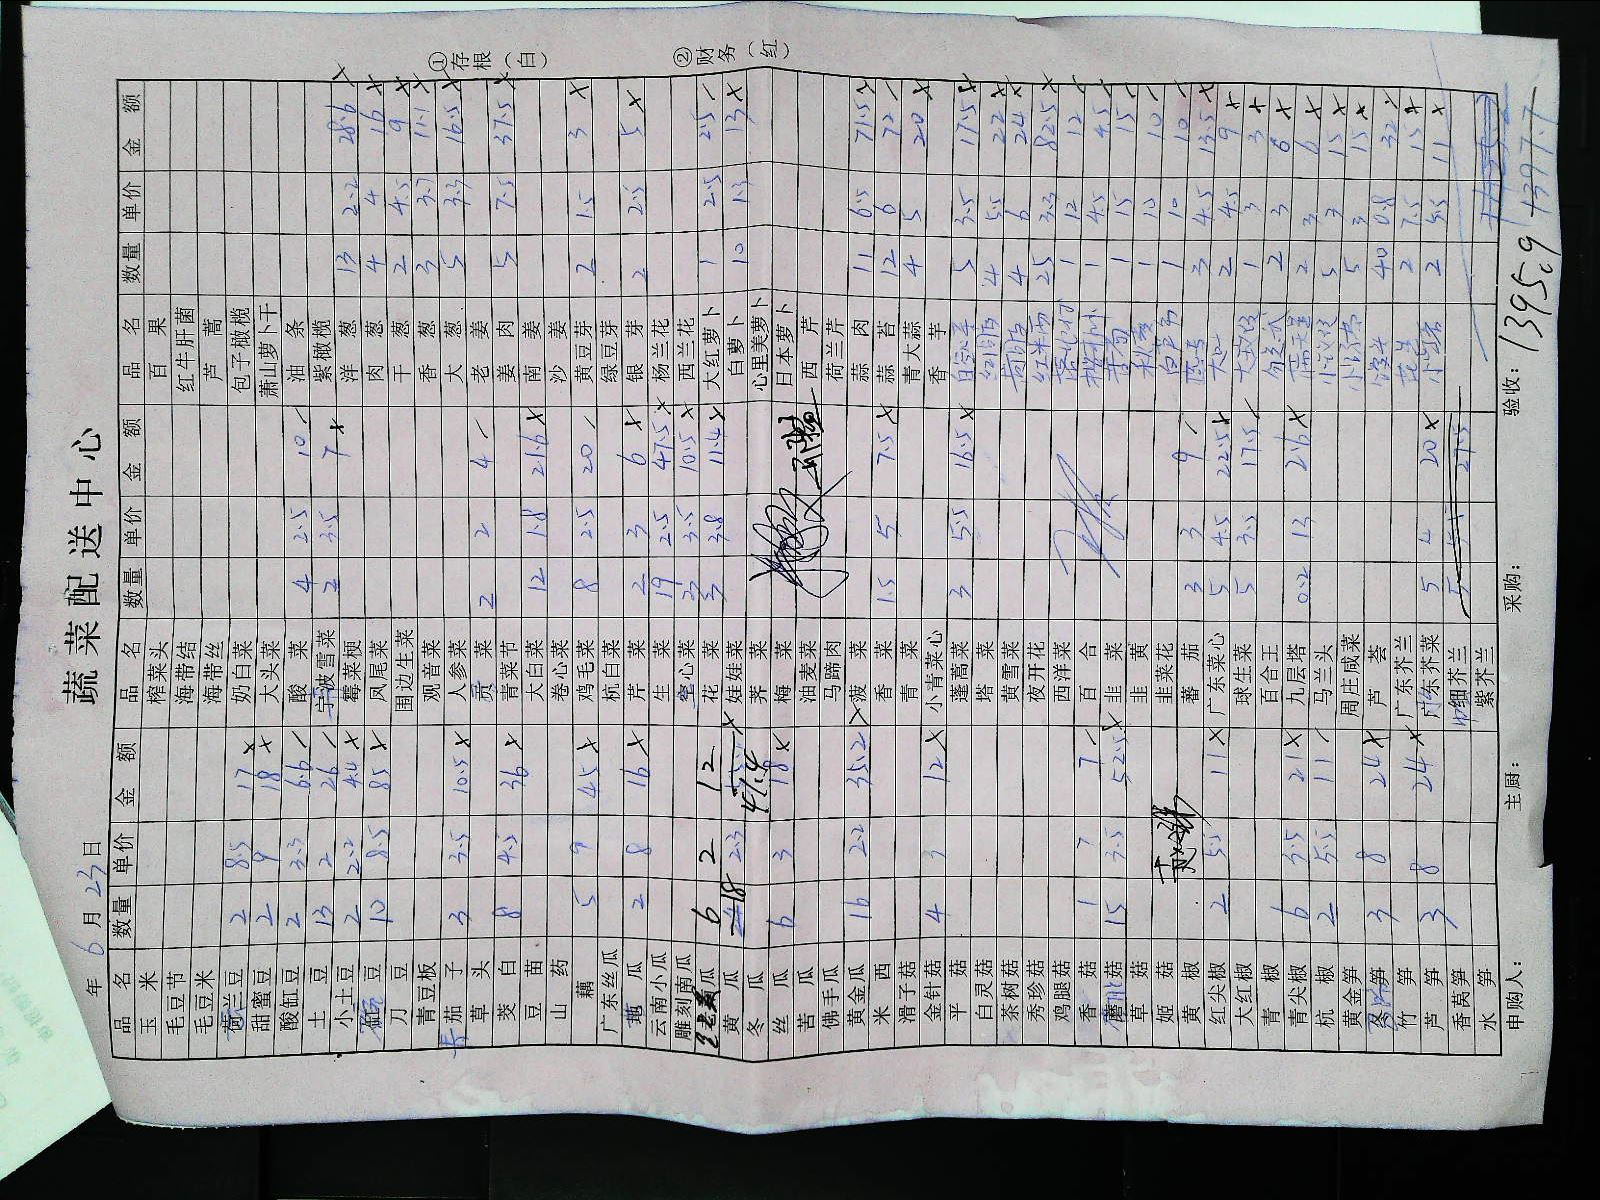 蔬菜配送中心
年 6月23日
品名 数量 单价 金额 品名 数量 单价 金额 品名 数量 单价 金额
玉米 榨菜头 百果
毛豆节 海带结 红牛肝菌
毛豆米 海带丝 芦蒿
荷兰豆 2 8.5 17 奶白菜 包子橄榄
甜蜜豆 2 9 18 大头菜 萧山萝卜干
酸缸豆 2 3.3 6.6 酸菜 4 2.5 10 油条
土豆 13 2 26 波雪菜 2 3.5 7 紫橄榄
小土豆 2 2.2 4.4 霉菜梗 洋葱 13 2.2 28.6
豆 10 8.5 85 凤尾菜 肉葱 4 4 16
刀豆 围边生菜 干葱 2 4.5 9
青豆板 观音菜 香葱 3 3.7 11.1
茄子 3 3.5 10.5 人参菜 大葱 5 3.3 16.5
草头 菜 2 2 4 老姜
茭白 8 4.5 36 青菜节 姜肉 5 7.5 37.5
豆苗 大白菜 12 1.8 21.6 南姜
山药 卷心菜 沙姜
藕 5 9 45 鸡毛菜 8 2.5 20 黄豆芽 2 1.5 3
广东丝瓜 杭白菜 绿豆芽
地瓜 2 8 16 芹菜 2 3 6 银芽 2 2.5 5
云南小瓜 生菜 19 2.5 47.5 杨兰花
雕刻南瓜 空心菜 3 3.5 10.5 西兰花
老黄瓜 6 2 12 花菜 3 3.8 11.4 大红萝卜 1 2.5 2.5
黄瓜 18 2.3 41.4 娃娃菜 白萝卜 10 1.3 13
冬瓜 荠菜 心里美萝卜
丝瓜 6 3 18 梅菜 日本萝卜
苦瓜 油麦菜 西芹
佛手瓜 马蹄肉 荷兰芹
黄金瓜 16 2.2 35.2 菠菜 蒜肉 11 6.5 71.5
米西 香菜 1.5 5 7.5 蒜苔 12 6 72
滑子菇 青菜 青大蒜 4 5 20
金针菇 4 3 12 小青菜心 香芋
平菇 蓬蒿菜 3 5.5 16.5 5 3.5 17.5
白灵菇 塔菜 4 5.5 22
茶树菇 黄雪菜 4 6 24
秀珍菇 夜开花 25 3.3 82.5
鸡腿菇 西洋菜 1 12 12
香菇 1 7 7 百合 1 4.5 4.5
蘑菇 15 3.5 52.5 韭菜 1 15 15
草菇 韭黄 1 10 10
姬菇 韭菜花 1 10 10
黄椒 蕃茄 3 3 9 3 4.5 13.5
红尖椒 2 5.5 11 广东菜心 5 4.5 22.5 2 4.5 9
大红椒 球生菜 5 3.5 17.5 1 3 3
青椒 百合王 2 3 6
青尖椒 6 3.5 21 九层塔 0.2 13 2.6 2 3 6
杭椒 2 5.5 11 马兰头 5 3 15
黄金笋 周庄咸菜 5 3 15
笋 3 8 24 芦荟 40 0.8 32
竹笋 广东芥兰 2 7.5 15
芦笋 3 8 24 广东芥菜 5 4 20 2 5.5 11
香莴笋 细芥兰 5 5.5 27.5
水笋 紫芥兰
申购人： 主厨： 采购： 验收： 1395.9 1397.7
①存根（白） ②财务（红）